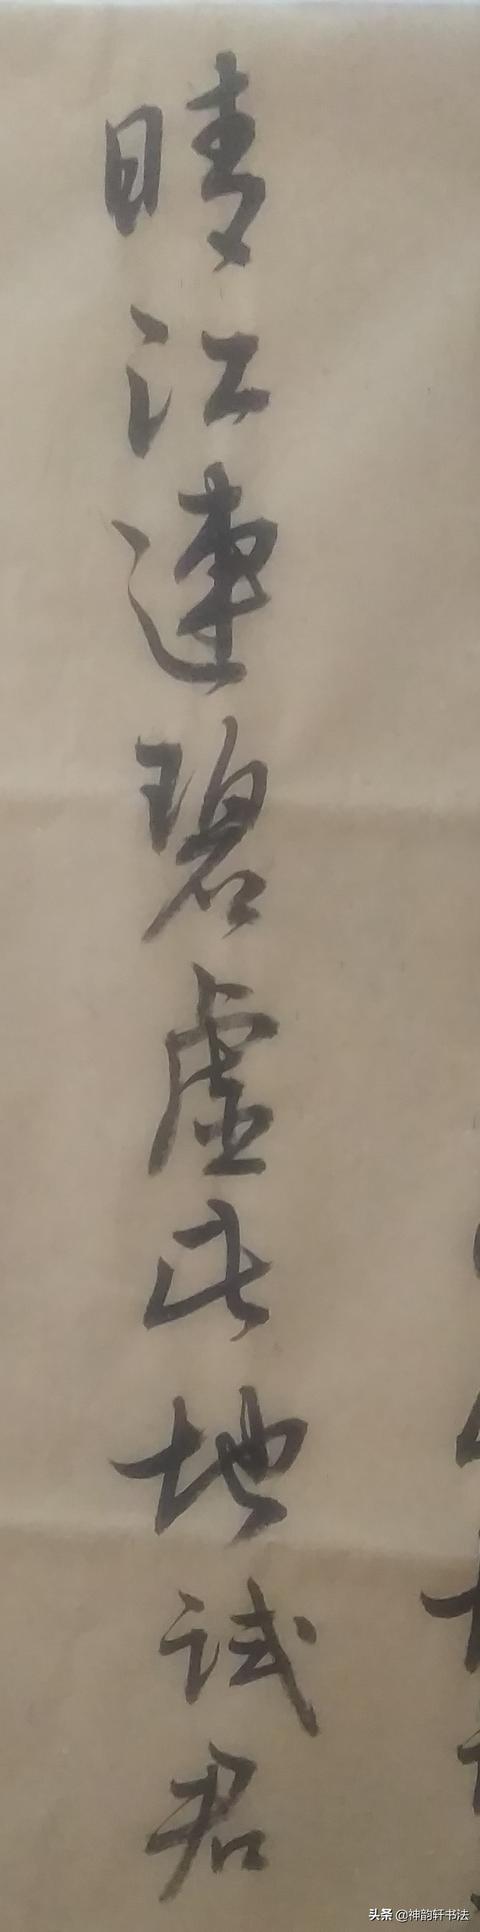 晴江连碧虚此地试君
头条 @神韵轩书法